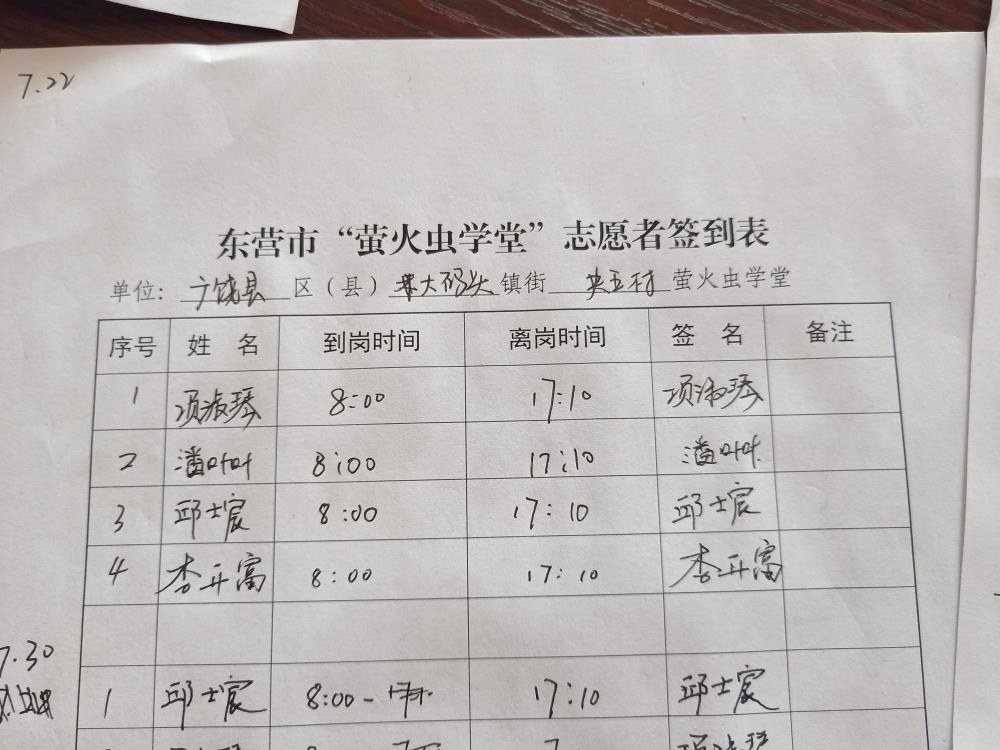 7.22
东营市“萤火虫学堂”志愿者签到表
单位: 广饶县 区（县） 大码头 镇街 央五村 萤火虫学堂
序号 姓 名 到岗时间 离岗时间 签 名 备注
1 项淑琴 8:00 17:10 项淑琴
2 潘叶叶 8:00 17:10 潘叶叶
3 邱士宸 8:00 17:10 邱士宸
4 李开富 8:00 17:10 李开富
7.30
1 邱士宸 8:00- 17:10 邱士宸